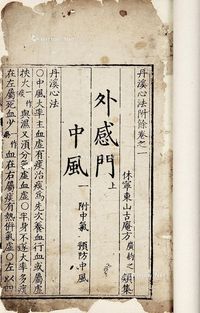 丹溪心法附餘卷之一
休寧東山古庵方廣約之類集
外感門上
中風一 附中氣 預防中風
丹溪心法
○中風大率主血虛有痰治痰爲先次養血行血或屬虛
挾火一作痰與濕又須分氣虛血虛○半身不遂大率多痰
在左屬死血少血一作在右屬痰有熱併氣虛○左以四